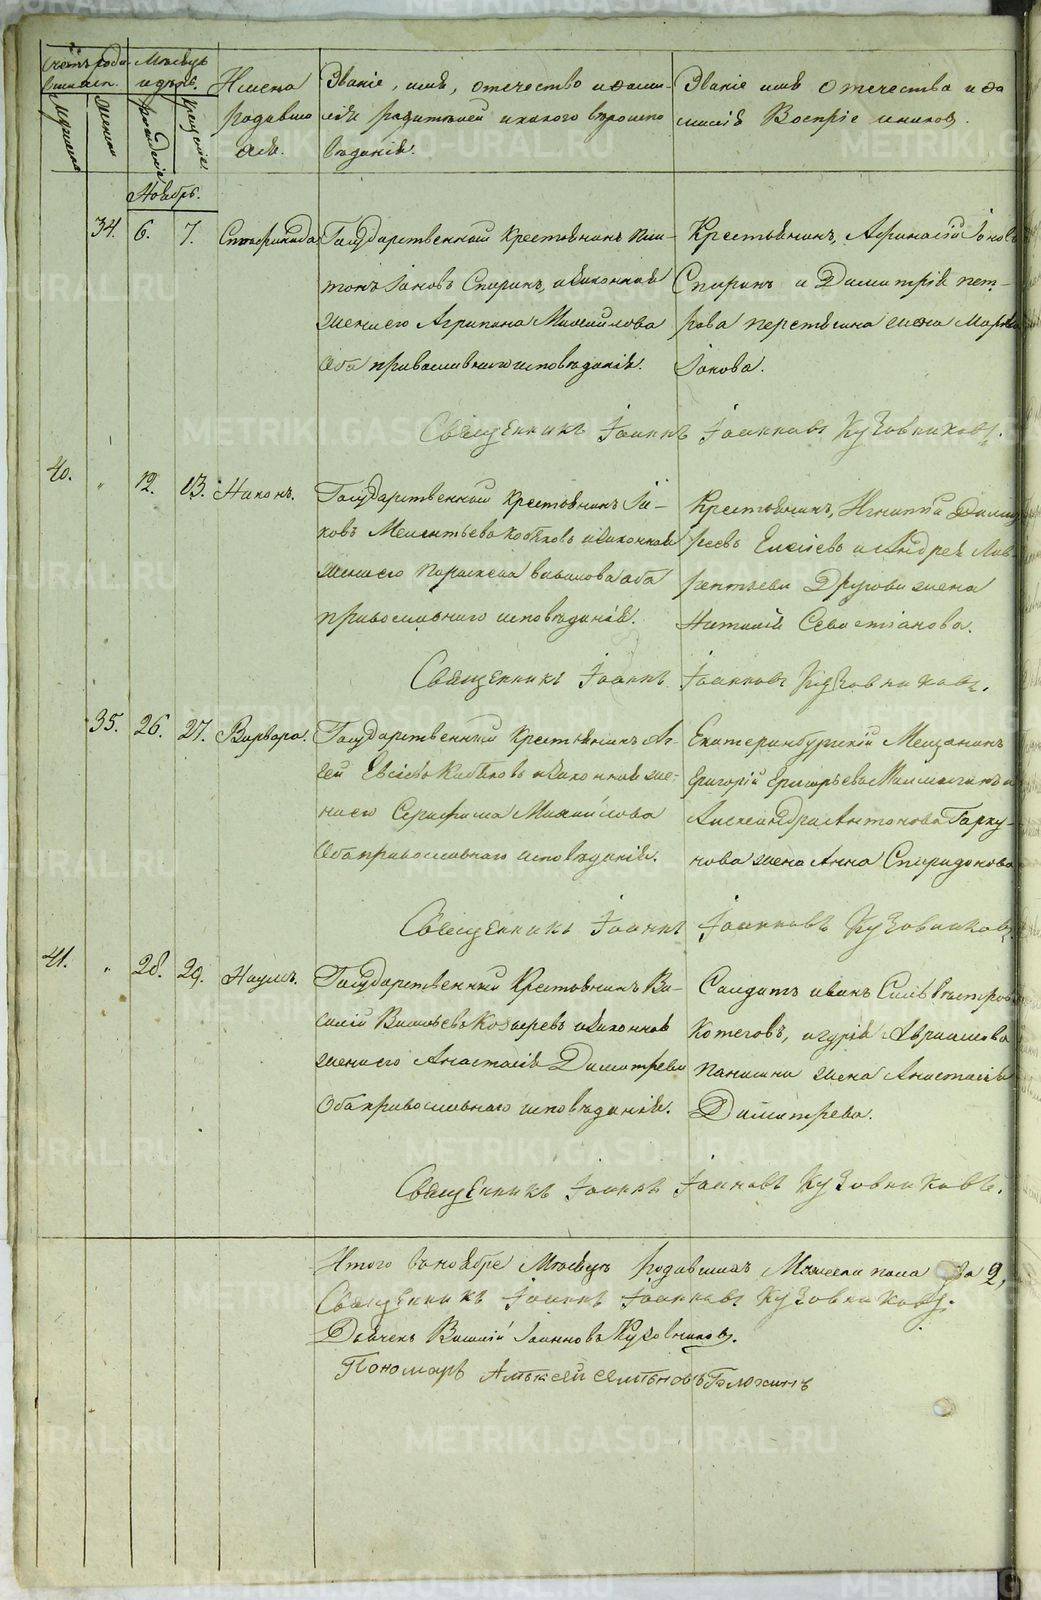 Счетъ роди
вшихся.
Мѣсяцъ
и день.
Имена
родивших
ся.
Званіе, имя, отечество и фами-
лія родителей и какого вѣроиспо
вѣданія.
Званіе имя отечество и фа
милія Воспріемниковъ.
мужеска
женска
рожденія
крещенія
Ноябрь.
34. 6. 7.
Государственный крестьянинъ Пла-
тонъ Іаковъ Спиринъ, и законная
жена его Агрипина Михайлова
Оба православнаго исповѣданія.
Крестьянинъ, Афанасій Іаковъ
Спиринъ и Димитрія Пет-
рова жена Марѳа
Іакова.
Священникъ Іоаннъ Іоанновъ Кузовниковъ.
40. " 12. 13. Никонъ.
Государственный крестьянинъ Іа-
ковъ Мелентьевъ Кобяковъ и законная
жена его Параскева Вавилова оба
православнаго исповѣданія.
Крестьянинъ, Игнатій
Елисѣевъ и Андрея Лав
рентьева Другова жена
Наталія Севастіанова.
Священникъ Іоаннъ Іоанновъ Кузовниковъ.
35. 26. 27. Варвара.
Государственный крестьянинъ Аг-
гей Евсѣевъ Кобяковъ и законная же-
на его Серафима Михайлова
Оба православнаго исповѣданія.
Екатеринбургскій Мещанинъ
Григорій Григорьевъ и
Александра Антонова Гарку-
нова жена Анна Спиридонова
Священникъ Іоаннъ Іоанновъ Кузовниковъ.
41. " 28. 29. Наумъ.
Государственный крестьянинъ Ва-
силій Васильевъ Козыревъ и законная
жена его Анастасія Димитрева
Оба православнаго исповѣданія.
Салдатъ Иванъ Сильвестровъ
Котеговъ, и Гурія Авраамова
Панишна жена Анастасія
Димитрева.
Священникъ Іоаннъ Іоанновъ Кузовниковъ.
Итого въ ноябре Мѣсяцъ Родившихъ Мужеска пола 2,
Священникъ Іоаннъ Іоанновъ Кузовниковъ.
Дьячекъ Василій Іоанновъ Кузовниковъ.
Пономарь Алѣксѣй Сѣмѣновъ
METRIKI.GASO-URAL.RU